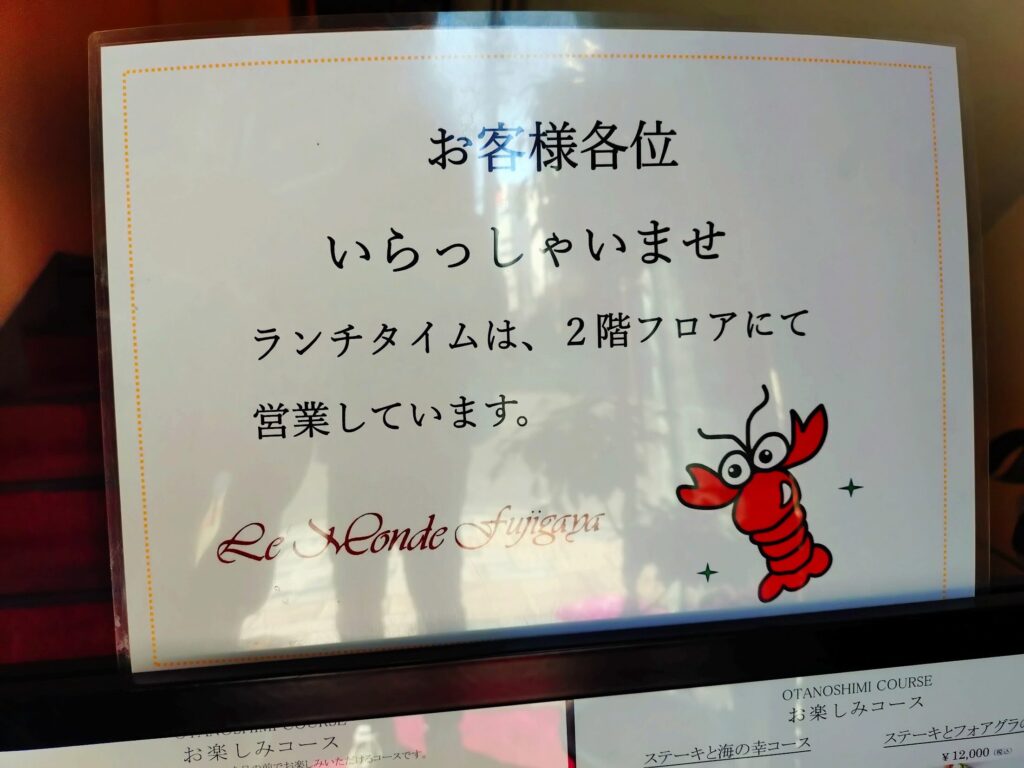 お客様各位
いらっしゃいませ
ランチタイムは、2階フロアにて
営業しています。
Le Monde Fujigaya
OTANOSHIMI COURSE
お楽しみコース
お楽しみいただけるコースです。
OTANOSHIMI COURSE
お楽しみコース
ステーキと海の幸コース
ステーキとフォアグラの
¥12,000(税込)